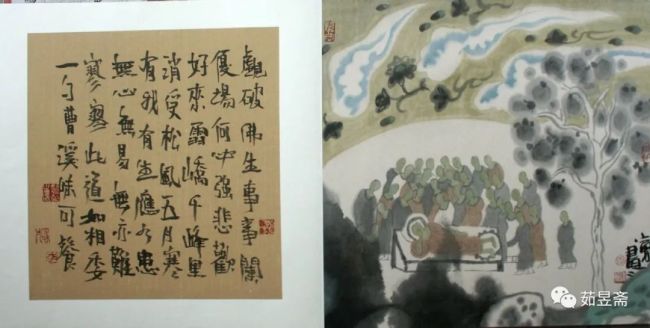 覷破浮生事事闌
優場何必強悲歡
好來雪嶠千峰里
消受松風五月寒
有我有生應有患
無心無易無亦難
寥寥此道如相委
一勺曹溪味可餐
茹昱斋